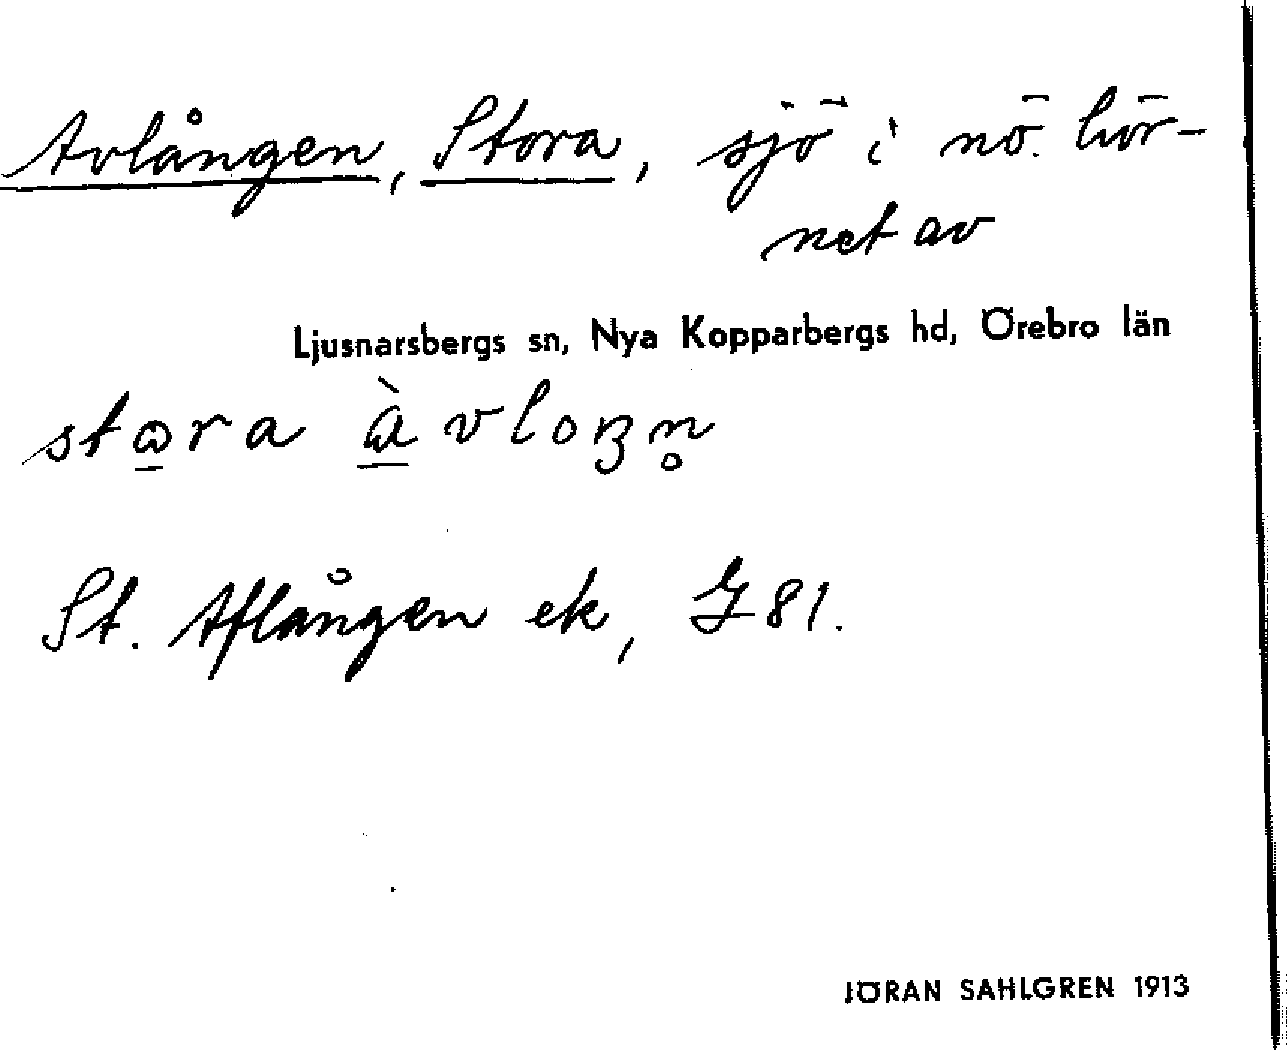 Avlången, Stora, sjö i nö. hör-
net av
Ljusnarsbergs sn, Nya Kopparbergs hd, Örebro län
stɷ̱ra ὰ̱vloŋn̥
St. Aflången ek, G 81.
JÖRAN SAHLGREN 1913